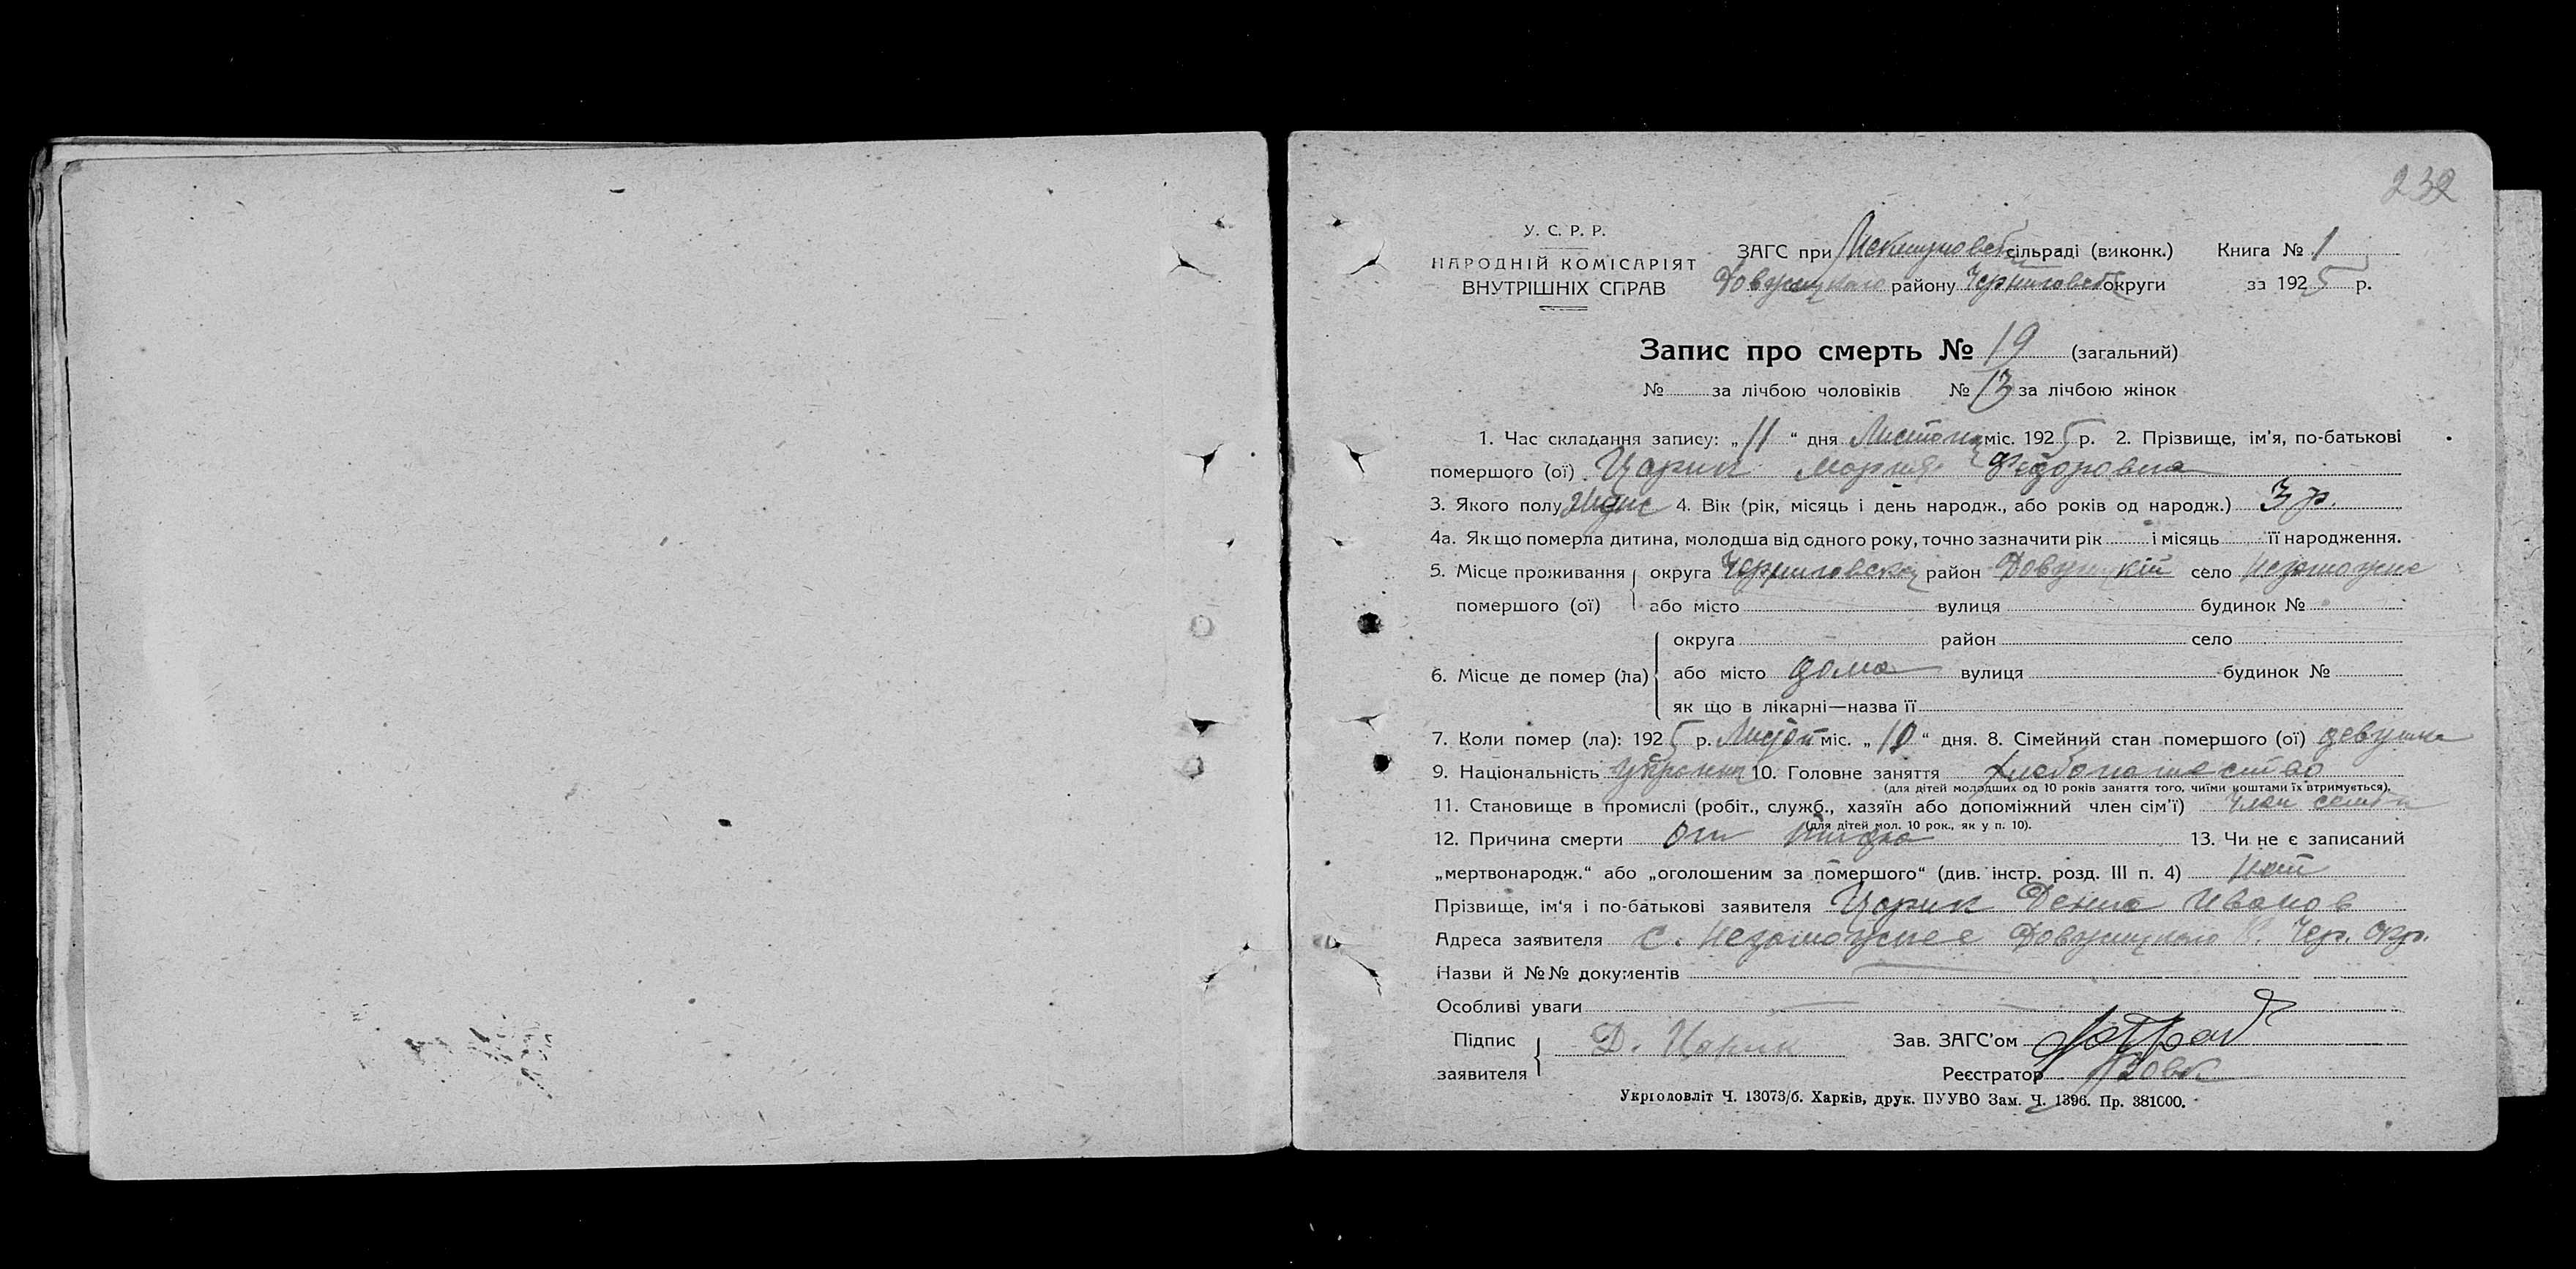 232
У. С. Р. Р.
НАРОДНІЙ КОМІСАРІЯТ
ВНУТРІШНІХ СПРАВ
ЗАГС при сільраді (виконк.) Книга № 1
району Черниговск округи за 1925 р.
Запис про смерть № 19 (загальний)
№ за лічбою чоловіків № 13 за лічбою жінок
1. Час складання запису: „11“ дня Листопад міс. 1925 р. 2. Прізвище, ім'я, по-батькові
помершого (ої) Царик Мария Федоровна
3. Якого полу 4. Вік (рік, місяць і день народж., або років од народж.) 3 р.
4а. Як що померла дитина, молодша від одного року, точно зазначити рік і місяць її народження.
5. Місце проживання округа Черниговска район село
помершого (ої) або місто вулиця будинок №
округа район село
6. Місце де помер (ла) або місто дома вулиця будинок №
як що в лікарні—назва її
7. Коли помер (ла): 1925 р. Листоп міс. „10“ дня. 8. Сімейний стан помершого (ої) девушка
9. Національність Украин 10. Головне заняття Хлебопашество
(для дітей молодших од 10 років заняття того, чиїми коштами їх втримується).
11. Становище в промислі (робіт., служб., хазяїн або допоміжний член сім'ї) Член семьи
(для дітей мол. 10 рок., як у п. 10).
12. Причина смерти от тифа 13. Чи не є записаний
„мертвонародж.“ або „оголошеним за помершого“ (див. інстр. розд. III п. 4) нет
Прізвище, ім'я і по-батькові заявителя Царик Денис Иванов
Адреса заявителя с. Чер. окр.
Назви й №№ документів
Особливі уваги
Підпис Д. Царик Зав. ЗАГС'ом
заявителя Реєстратор Вовк
Укрголовліт Ч. 13073/б. Харків, друк. ПУУВО Зам. Ч. 1396. Пр. 381000.